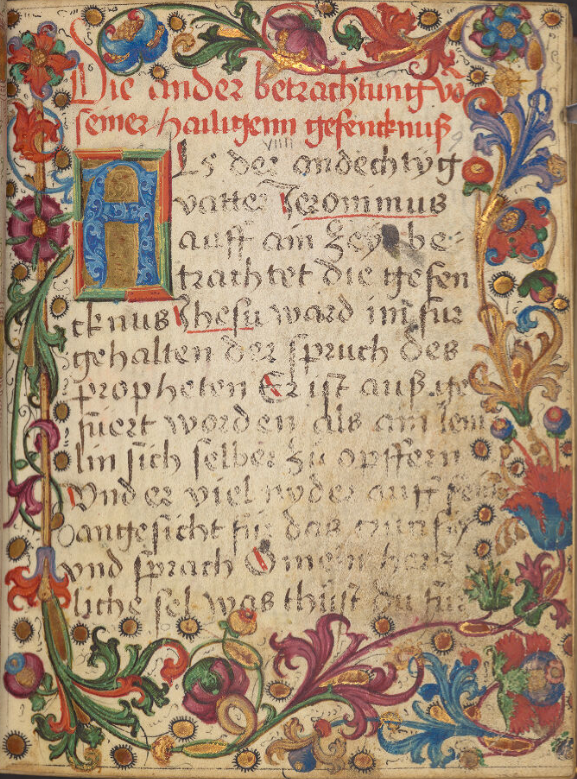 Die ander betrachtung võ
seiner hailigenn gefencknuß
viiii
Als der andechtyg
vatter Jeronimus
auff ain Zeyt be-
trachtet die gefen
cknus Jhesu ward im für
gehalten der spruch des
propheten Er ist auß ge
füert worden als ain lem
lin sich selber zu opffern
vnd er viel nyder auff sein
angesicht für das
vnd sprach O mein hertz
liche sel was thůst du für